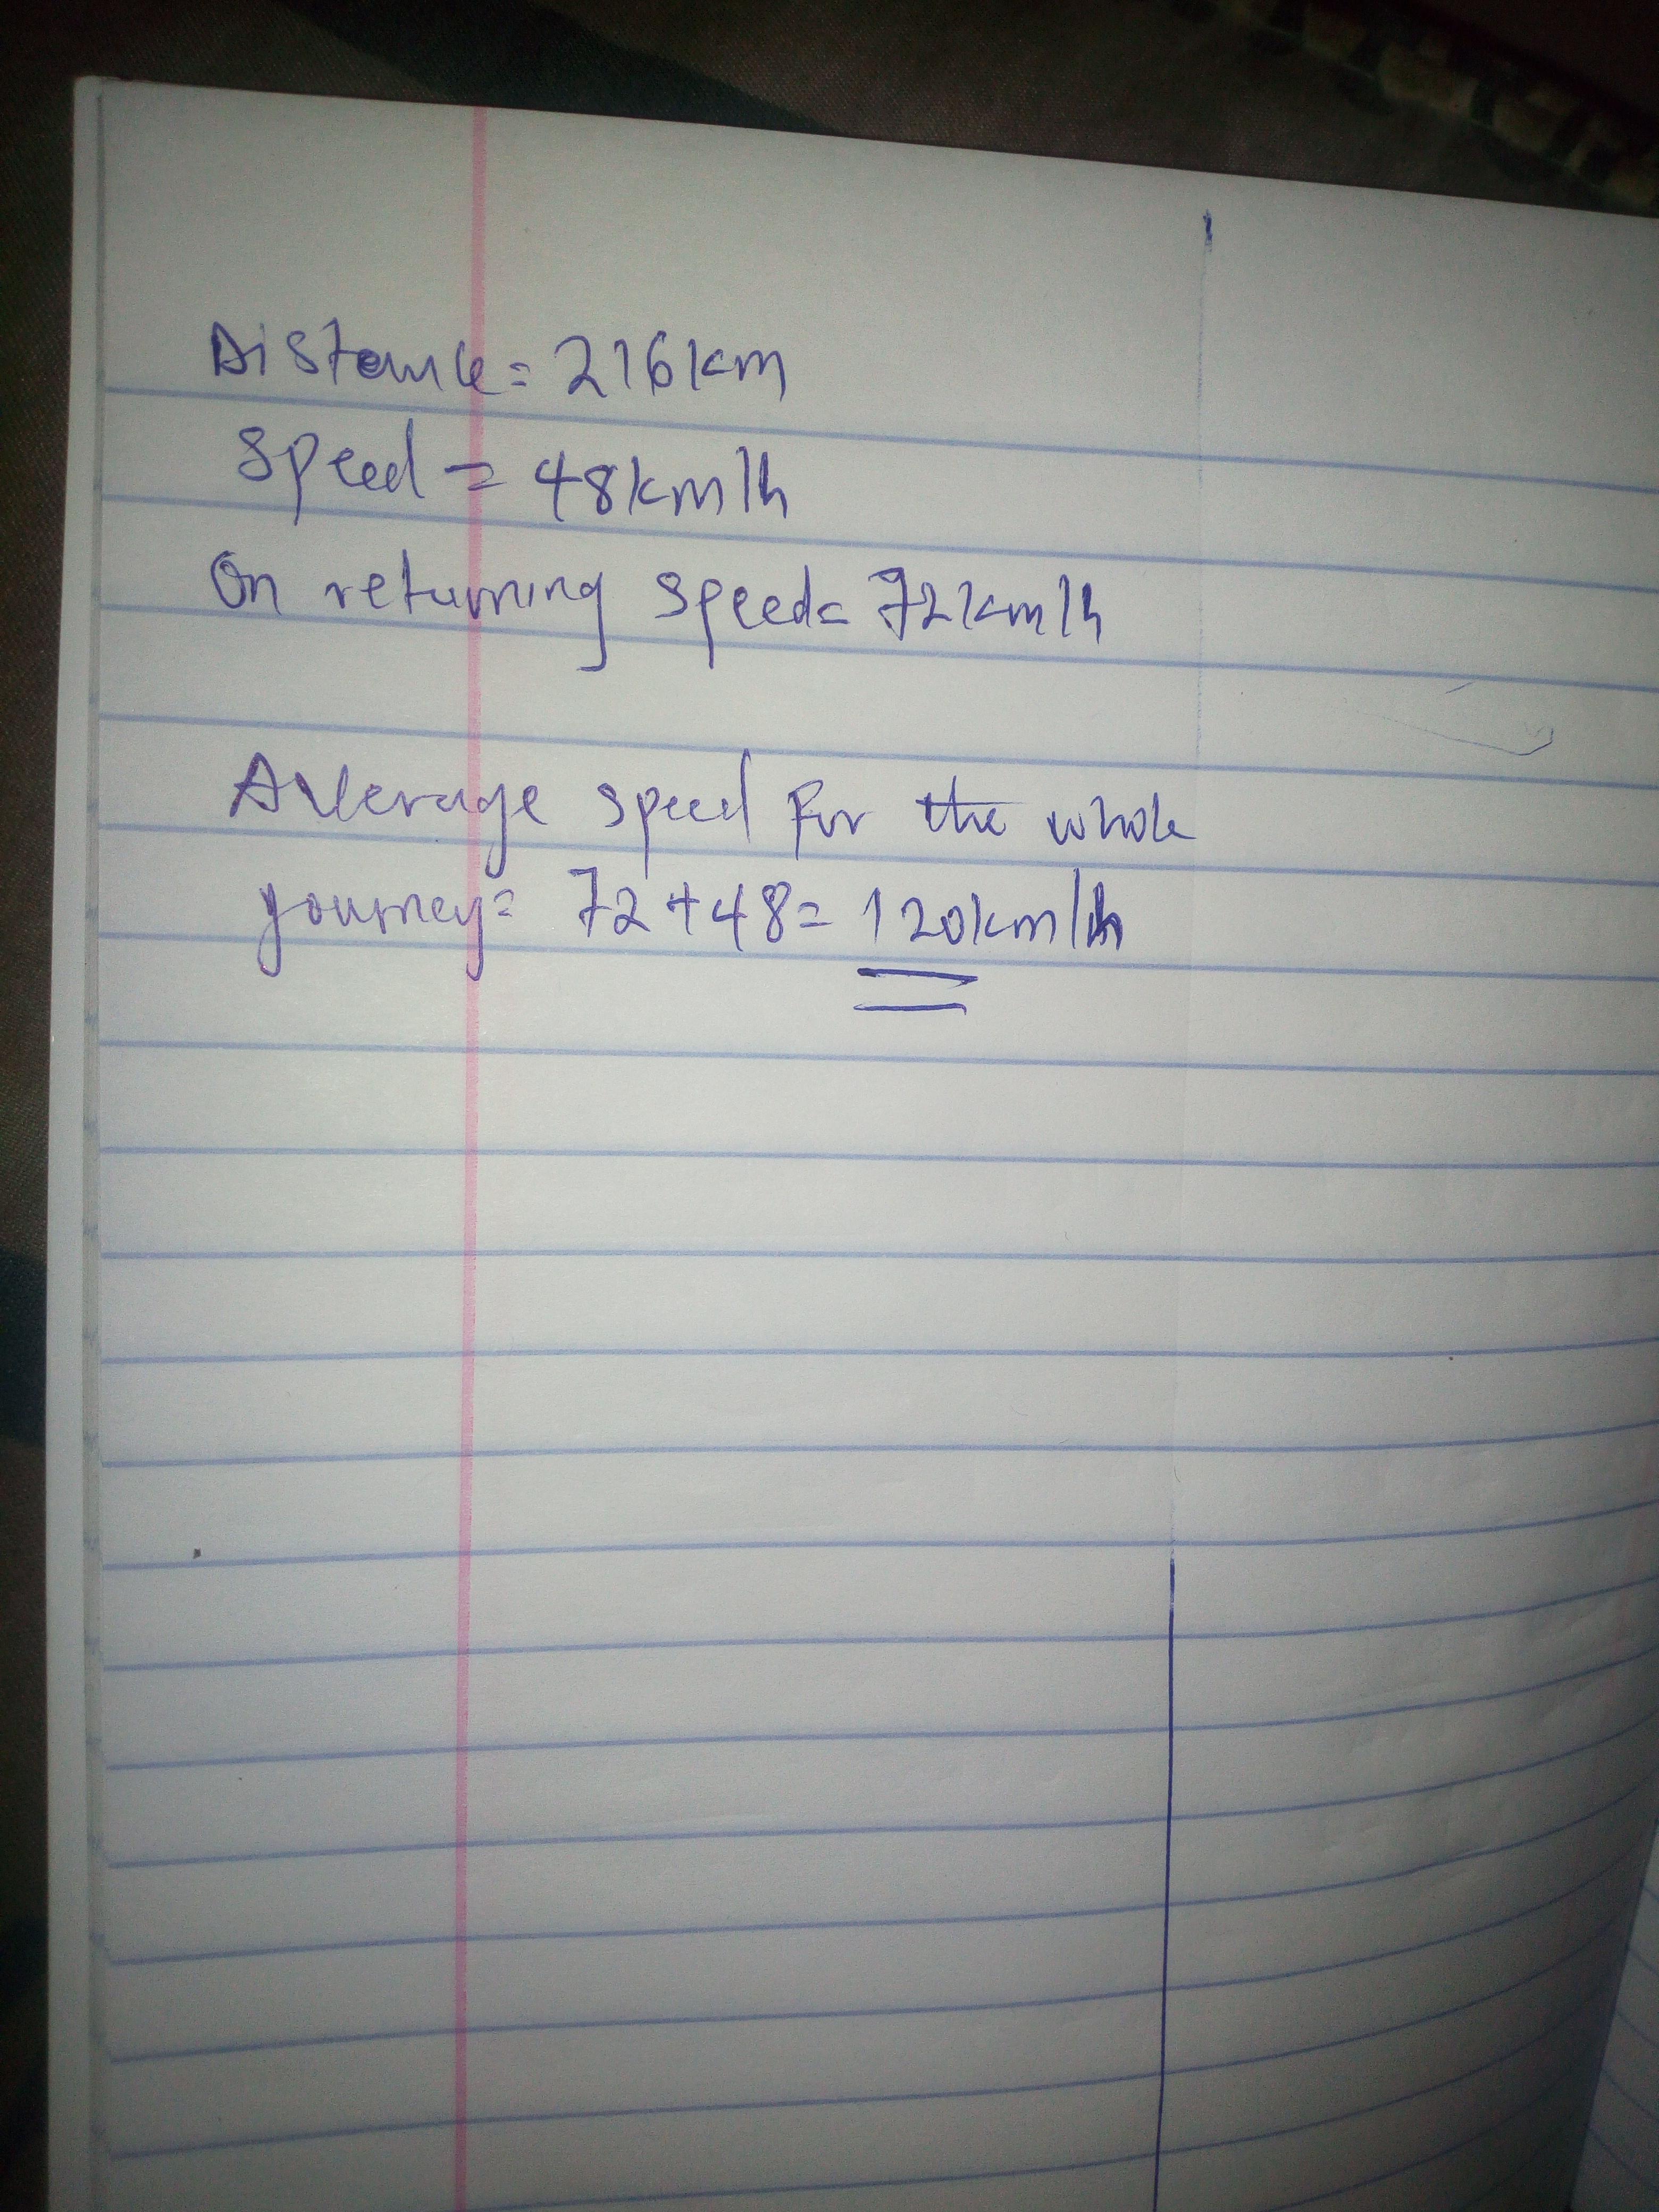 Distance = 216km
Speed = 48km/h
On returning speed = 72km/h
Average speed for the whole
journey = 72 + 48 = 120km/h